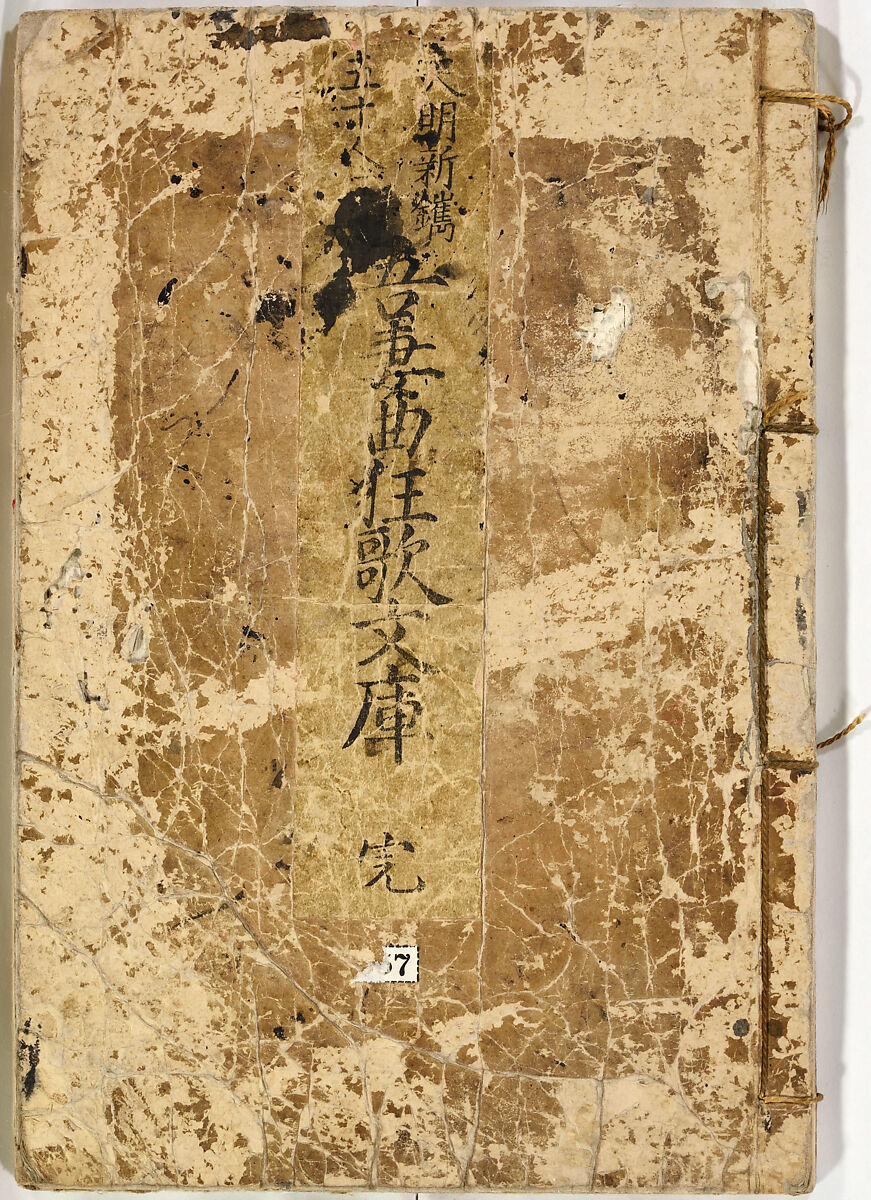 天明新鐫
五十人
吾妻曲狂歌文庫
完
7